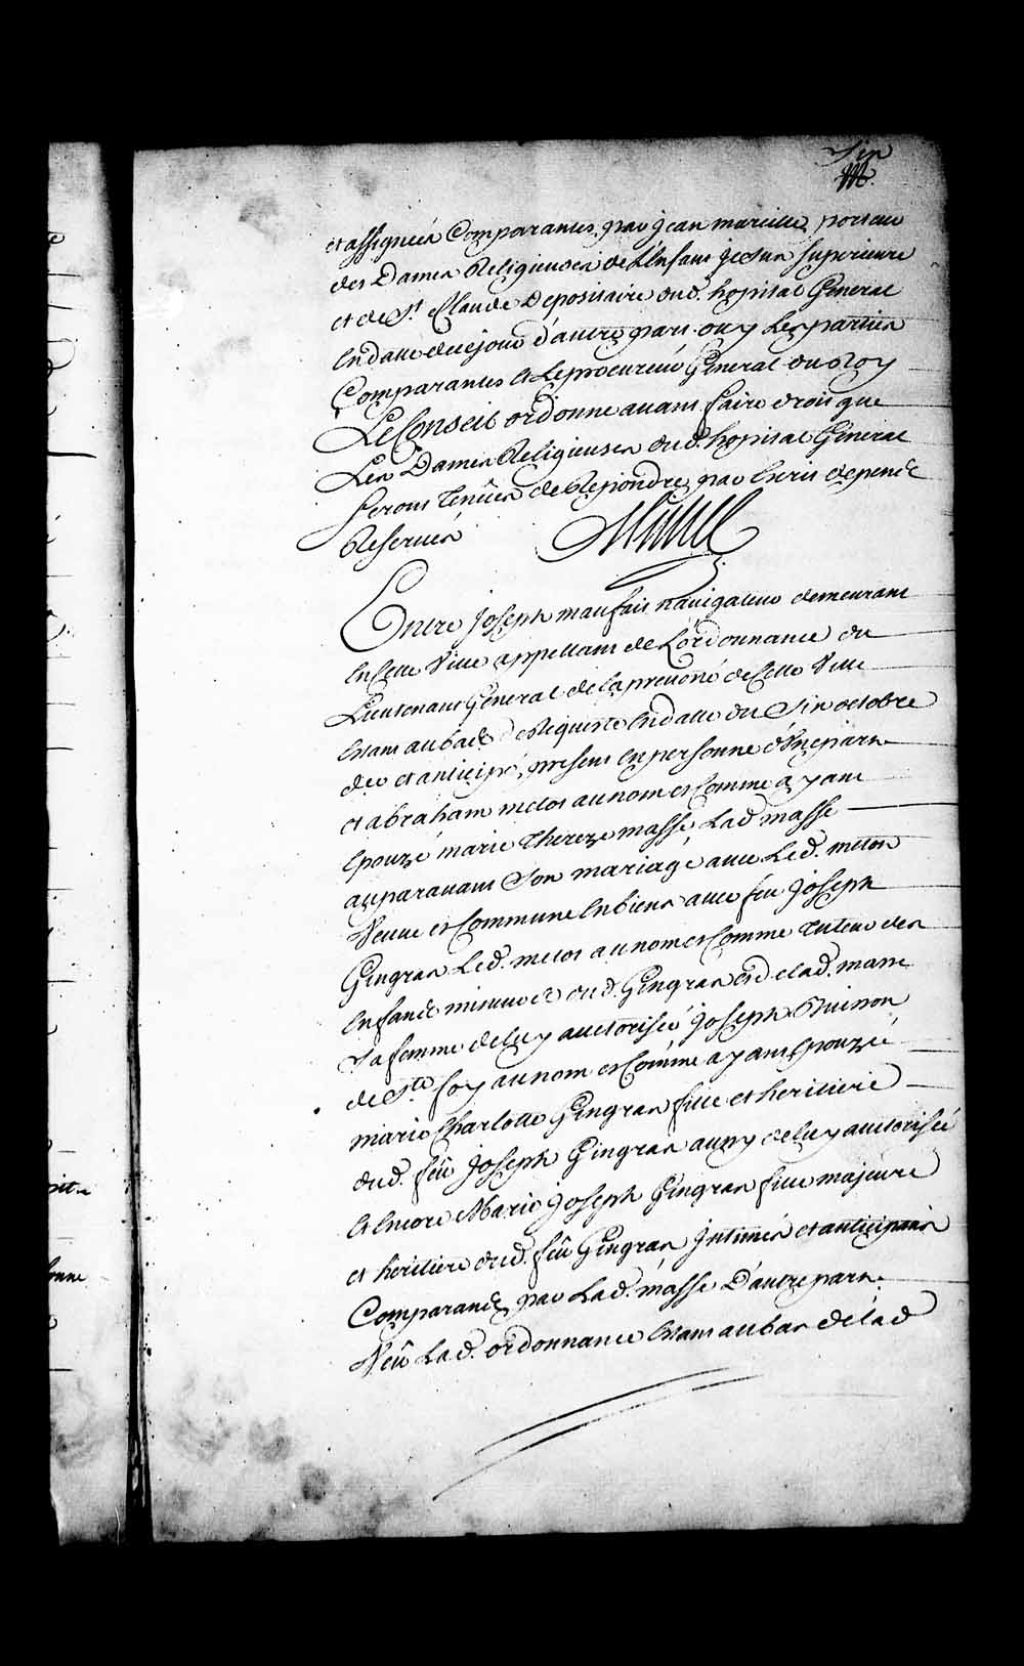 Six
et assignées Comparantes par Jean marcille porteur
des Dames Religieuses de L'Enfant Jesus superieure
et de St. Claude Depositaire dud. hopital General
En datte de ce jour d'autre part. ouy Les parties
Comparantes et Le procureur General du Roy
Le Conseil ordonne avant faire droit que
Les Dames Religieuses dud. hopital General
seront Tenües de Repondre par Ecrit depens
Reservés
Entre Joseph maufait navigateur demeurant
En Cette Ville appellant de L'ordonnance du
Lieutenant General de la prevoté de Cette Ville
Etant au bas de Requeste En datte du Six octobre
der et anticipé, present en personne d'Une part
et abraham metot au nom et Comme ayant
Epouzé marie Thereze massé Lad massé
auparavant Son mariage avec Led. metot
Veuve et Commune En biens avec feu Joseph
Gingras Led. metot au nom et Comme Tuteur des
Enfans mineurs dud. Gingras et de Lad. masse
Sa femme de luy auctorisée Joseph
de Ste foy au nom et Comme ayant Epouzée
marie Charlotte Gingras fille et heritiere
dud. feu Joseph Gingras aussy de luy auctorisée
Et Encore Marie Joseph Gingras fille majeure
et heritiere dud. feu Gingras Intimés et anticipans
Comparans par Lad. massé D'autre part.
Veu Lad. ordonnance Etant au bas de lad